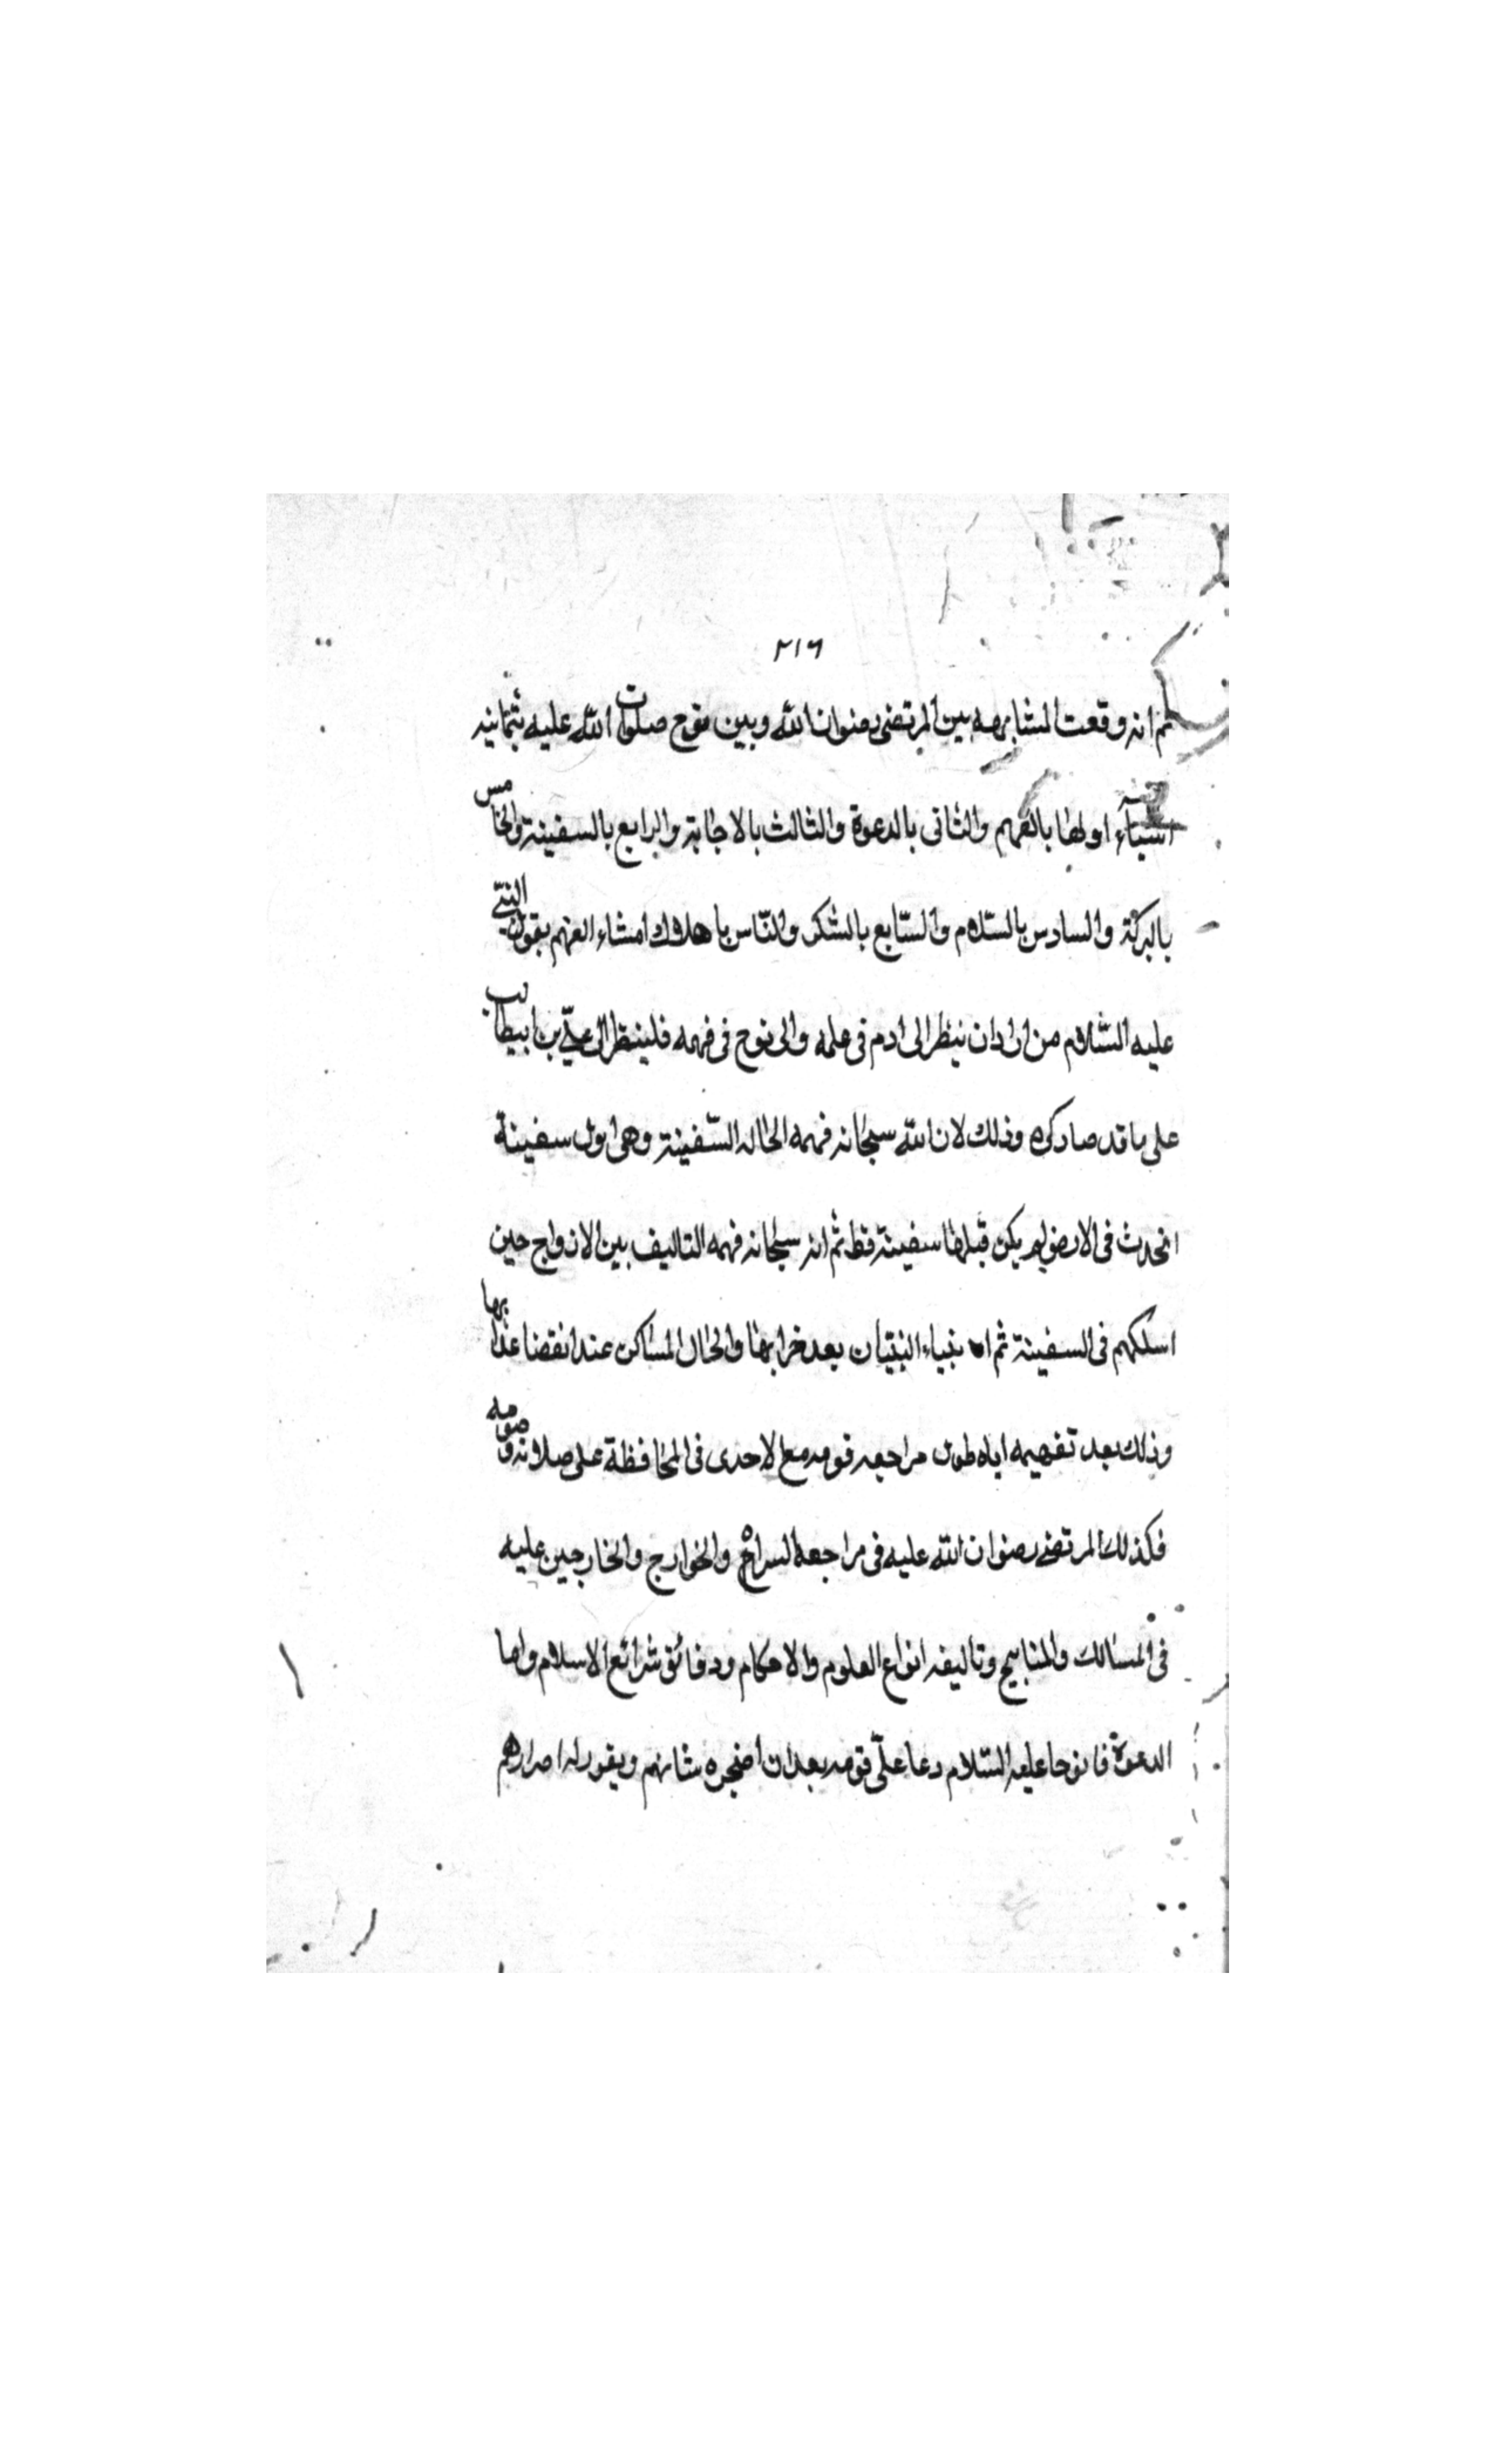 ٢١٦
ثم انه وقعت المشابهه بين المرتضى رضوان الله وبين نوح صلوات الله عليه بثمانيه
اشياء اولها بالفهم والثانى بالدعوة والثالث بالاجابة والرابع بالسفينة والخامس
بالبركة والسادس بالسّلام والسّابع بالشكر والثامن باهلاك امشاء العزم بقول النبّي
عليه السّلام من اراد ان ينظر الى ادم فى علمه والى نوح فى فهمه فلينظر الى علىّ بن ابيطالب
على ما قد صار ذكره وذلك لان الله سبحانه فهمه الحاله السّفينة وهى اول سفينة
احدث فى الارض ولم يكن قبلها سفينة قط ثم انه سبحانه فهمه التاليف بين الازواج حين
اسلكهم فى السفينة ثم بعد خرابها والحال المساكن عند انقضا عذابها
وذلك بعد تفهيمه اياه طول مراجعه قومه مع لاحدى فى المحافظة على صلاته وصومه
فكذلك المرتضى رضوان الله عليه فى مراجعه والخوارج والخارجين عليه
فى المسالك والمناهيج وتاليفه انواع العلوم والاحكام ودقائق شرائع الاسلام واما
الدعوة فان نوحا عليه السّلام دعا علىّ قومه بعد ان اضجره شانهم ويقول له اصرارهم